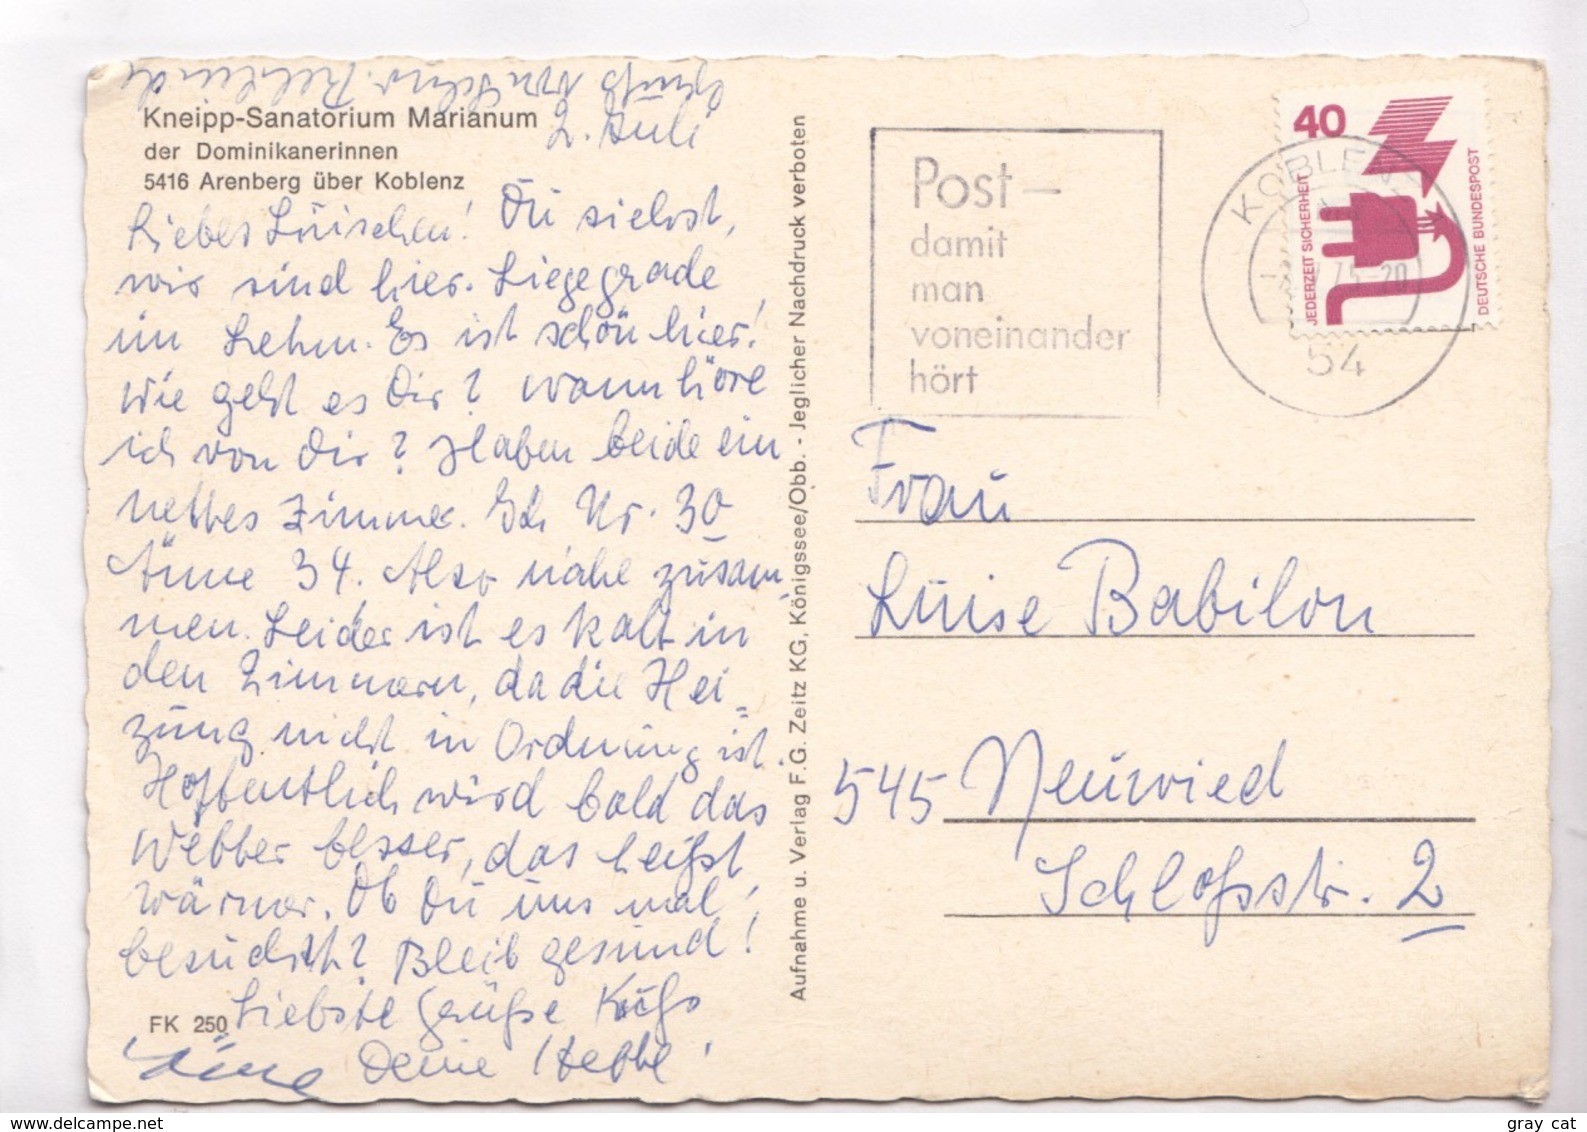 Gruß von Schw.
Kneipp-Sanatorium Marianum
der Dominikanerinnen
5416 Arenberg über Koblenz
2. Juli
Liebes Luischen! Du siehst,
wir sind hier. Liege gerade
im Lehm. Es ist schön hier!
Wie geht es Dir? Wann höre
ich von Dir? Haben beide ein
nettes Zimmer. Ich Nr. 30
Änne 34. Also nahe zusam-
men. Leider ist es kalt in
den Zimmern, da die Hei=
zung nicht in Ordnung ist.
Hoffentlich wird bald das
Wetter besser, das heißt
wärmer. Ob Du uns mal
besuchst? Bleib gesund!
FK 250
Liebste Grüße Kuß
Deine
Änne
Aufnahme u. Verlag F.G. Zeitz KG, Königssee/Obb. - Jeglicher Nachdruck verboten
Post -
damit
man
voneinander
hört
KOBLENZ
75-20
54
40
JEDERZEIT SICHERHEIT
DEUTSCHE BUNDESPOST
Frau
Luise Babilon
545 Neuwied
Schloßstr. 2
www.delcampe.net
gray cat